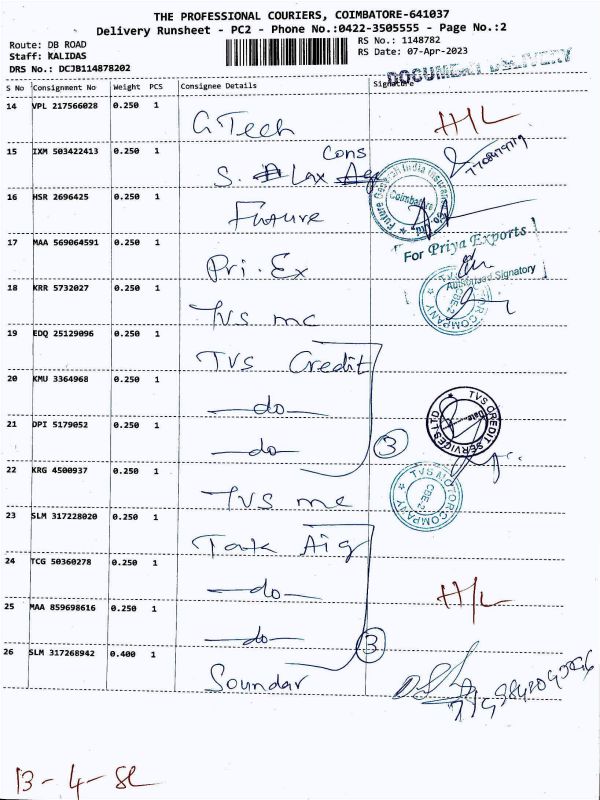 THE PROFESSIONAL COURIERS, COIMBATORE-641037
Delivery Runsheet - PC2 - Phone No.:0422-3505555 - Page No.:2
Route: DB ROAD
Staff: KALIDAS
DRS No.: DCJB114878202
RS No.: 1148782
RS Date: 07-Apr-2023
DOCUMENT DELIVERY
S No Consignment No Weight PCS Consignee Details Signature
14 VPL 217566028 0.250 1 G Tech H/L
15 IXM 503422413 0.250 1 S. Lax Cons
16 HSR 2696425 0.250 1 Future
Future Generali India Insurance Co. Ltd.
Coimbatore
17 MAA 569064591 0.250 1 Pri. Ex
For Priya Exports.
Authorised Signatory
18 KRR 5732027 0.250 1 TVS mc
TVS MOTOR COMPANY
CBE-2
19 EDQ 25129096 0.250 1 TVS Credit
20 KMU 3364968 0.250 1 —do—
21 DPI 5179052 0.250 1 —do— 3
TVS CREDIT SERVICES LTD
22 KRG 4500937 0.250 1 TVS mc
TVS MOTOR COMPANY
CBE-2
23 SLM 317228020 0.250 1 Tata Aig
24 TCG 50360278 0.250 1 —do— H/L
25 MAA 859698616 0.250 1 —do— 3
26 SLM 317268942 0.400 1 Soundar